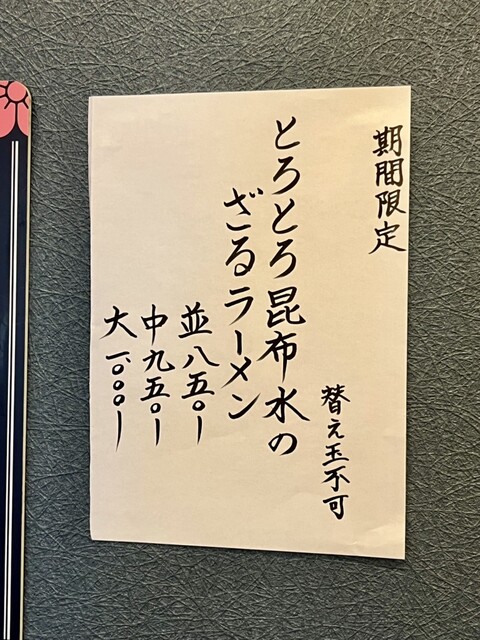 期間限定
替え玉不可
とろとろ昆布水の
ざるラーメン
並八五〇ー
中九五〇ー
大一、〇〇〇ー